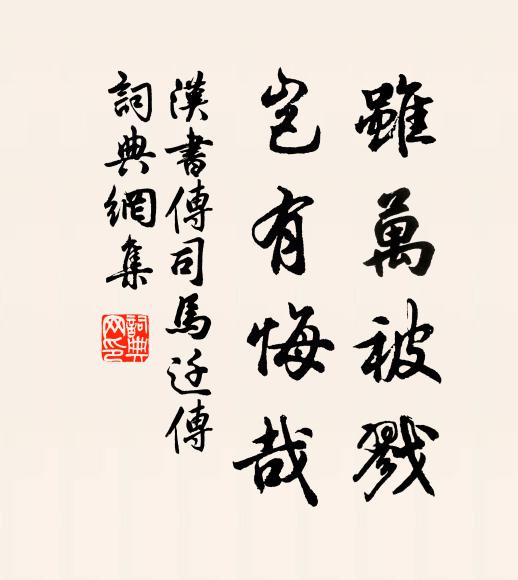 雖萬被戮
豈有悔哉
漢書傳司馬迁傳
詞典網集
詞典
网印